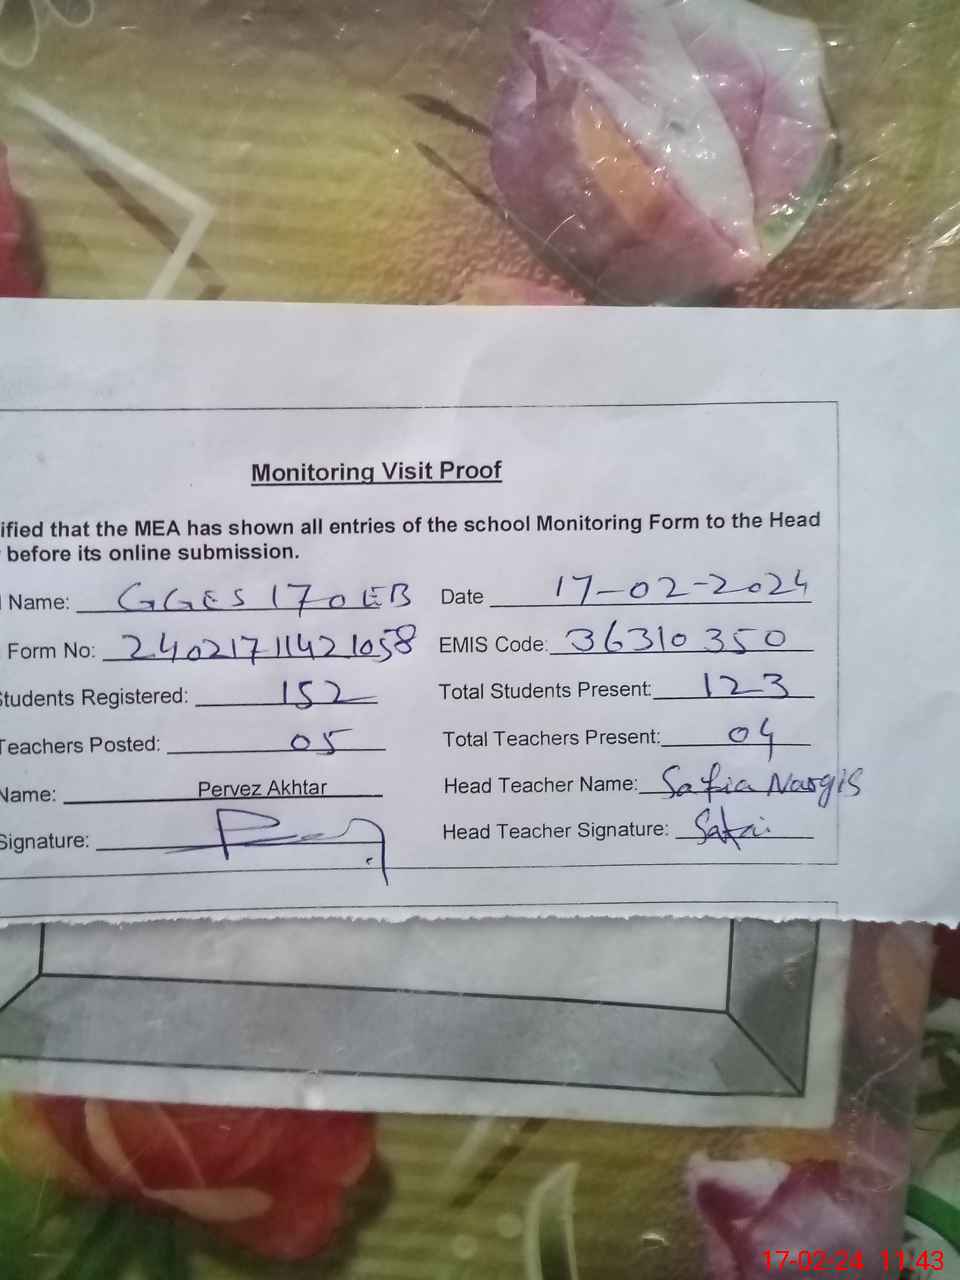 Monitoring Visit Proof
ified that the MEA has shown all entries of the school Monitoring Form to the Head
before its online submission.
Name: GGES 170 EB Date 17-02-2024
Form No: 24021711421058 EMIS Code: 36310350
Students Registered: 152 Total Students Present: 123
Teachers Posted: 05 Total Teachers Present: 04
Name: Pervez Akhtar Head Teacher Name: Safia Nargis
Signature: Head Teacher Signature:
17-02-24 11:43